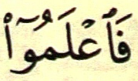 فَٱعْلَمُوٓا۟